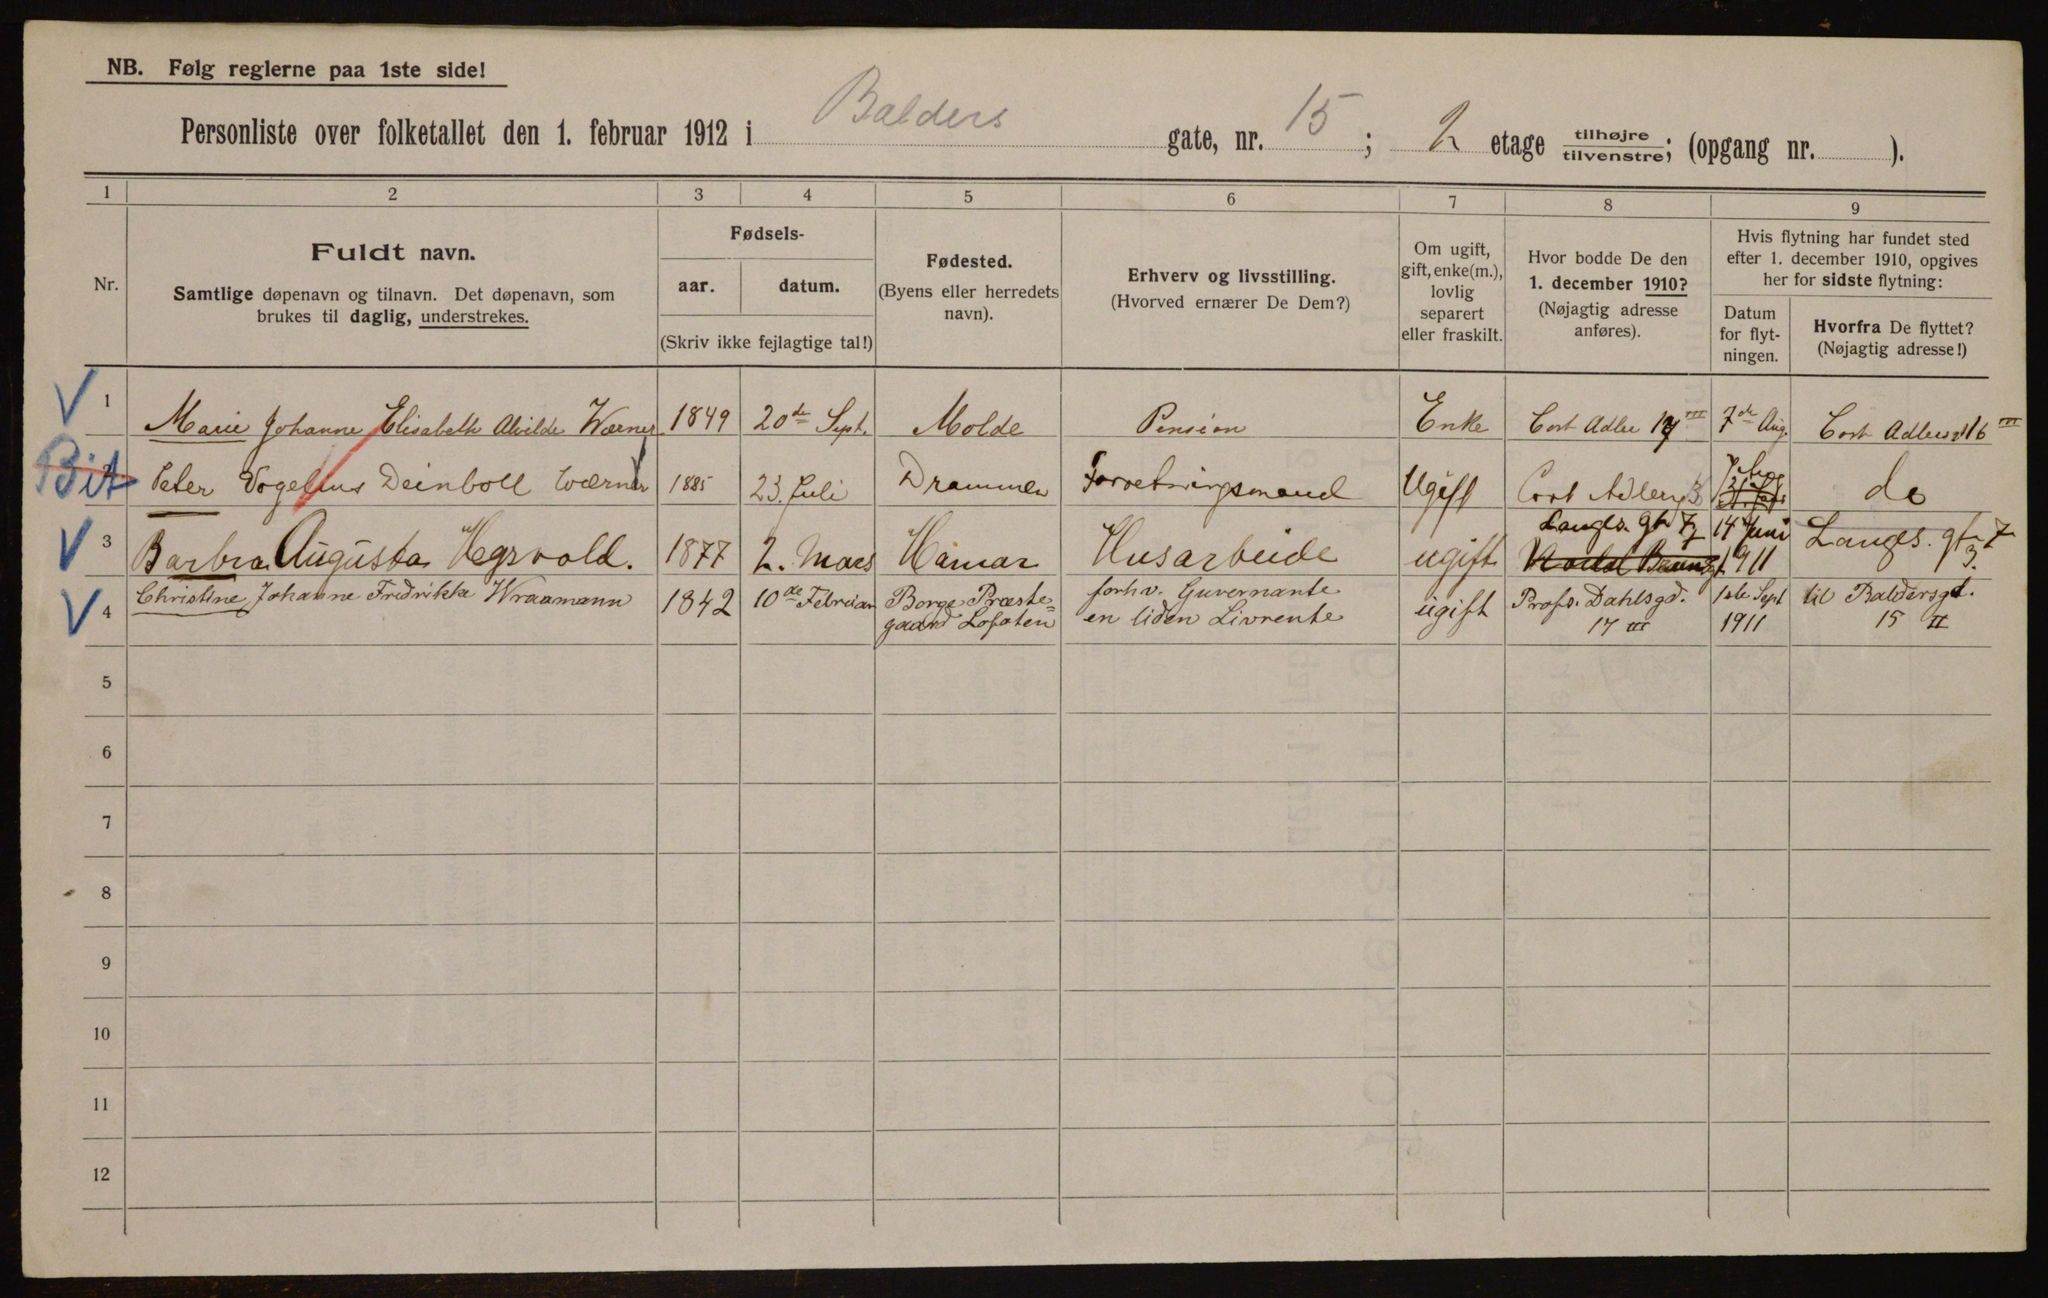 NB. Følg reglerne paa 1ste side!
Personliste over folketallet den 1. februar 1912 i Balders gate, nr. 15; 2 etage tilhøjre tilvenstre; (opgang nr. ).
1 2 3 4 5 6 7 8 9
Nr.
Fuldt navn.
Samtlige døpenavn og tilnavn. Det døpenavn, som
brukes til daglig, understrekes.
Fødsels-
aar. datum.
(Skriv ikke fejlagtige tal!)
Fødested.
(Byens eller herredets
navn).
Erhverv og livsstilling.
(Hvorved ernærer De Dem?)
Om ugift,
gift, enke(m.),
lovlig
separert
eller fraskilt.
Hvor bodde De den
1. december 1910?
(Nøjagtig adresse
anføres).
Hvis flytning har fundet sted
efter 1. december 1910, opgives
her for sidste flytning:
Datum
for flyt-
ningen.
Hvorfra De flyttet?
(Nøjagtig adresse!)
1 Marie Johanne Elisabeth Alvilde Wærner 1849 20de Sept. Molde Pension Enke Cort Adler III 7de Aug. Cort Adlersgt 16 III
Bit Peter Vogelius Deinboll Wærner 1885 23. Juli Drammen Forretningsmand Ugift Cort Adlers do
3 Barbra Augusta Hegsvold. 1877 2. Mars Hamar Husarbeide ugift Langes. gt 7 14 Juni 1911 Langes. gt 7
3.
4 Christine Johanne Fredrikke Wraamann 1842 10de Februar Borge Præste= forhv. Guvernante ugift Profs. Dahlsgd. 1ste Sept til Baldersgd.
gaard Lofoten en liden Livrente 17 III 1911 15 II
5
6
7
8
9
10
11
12